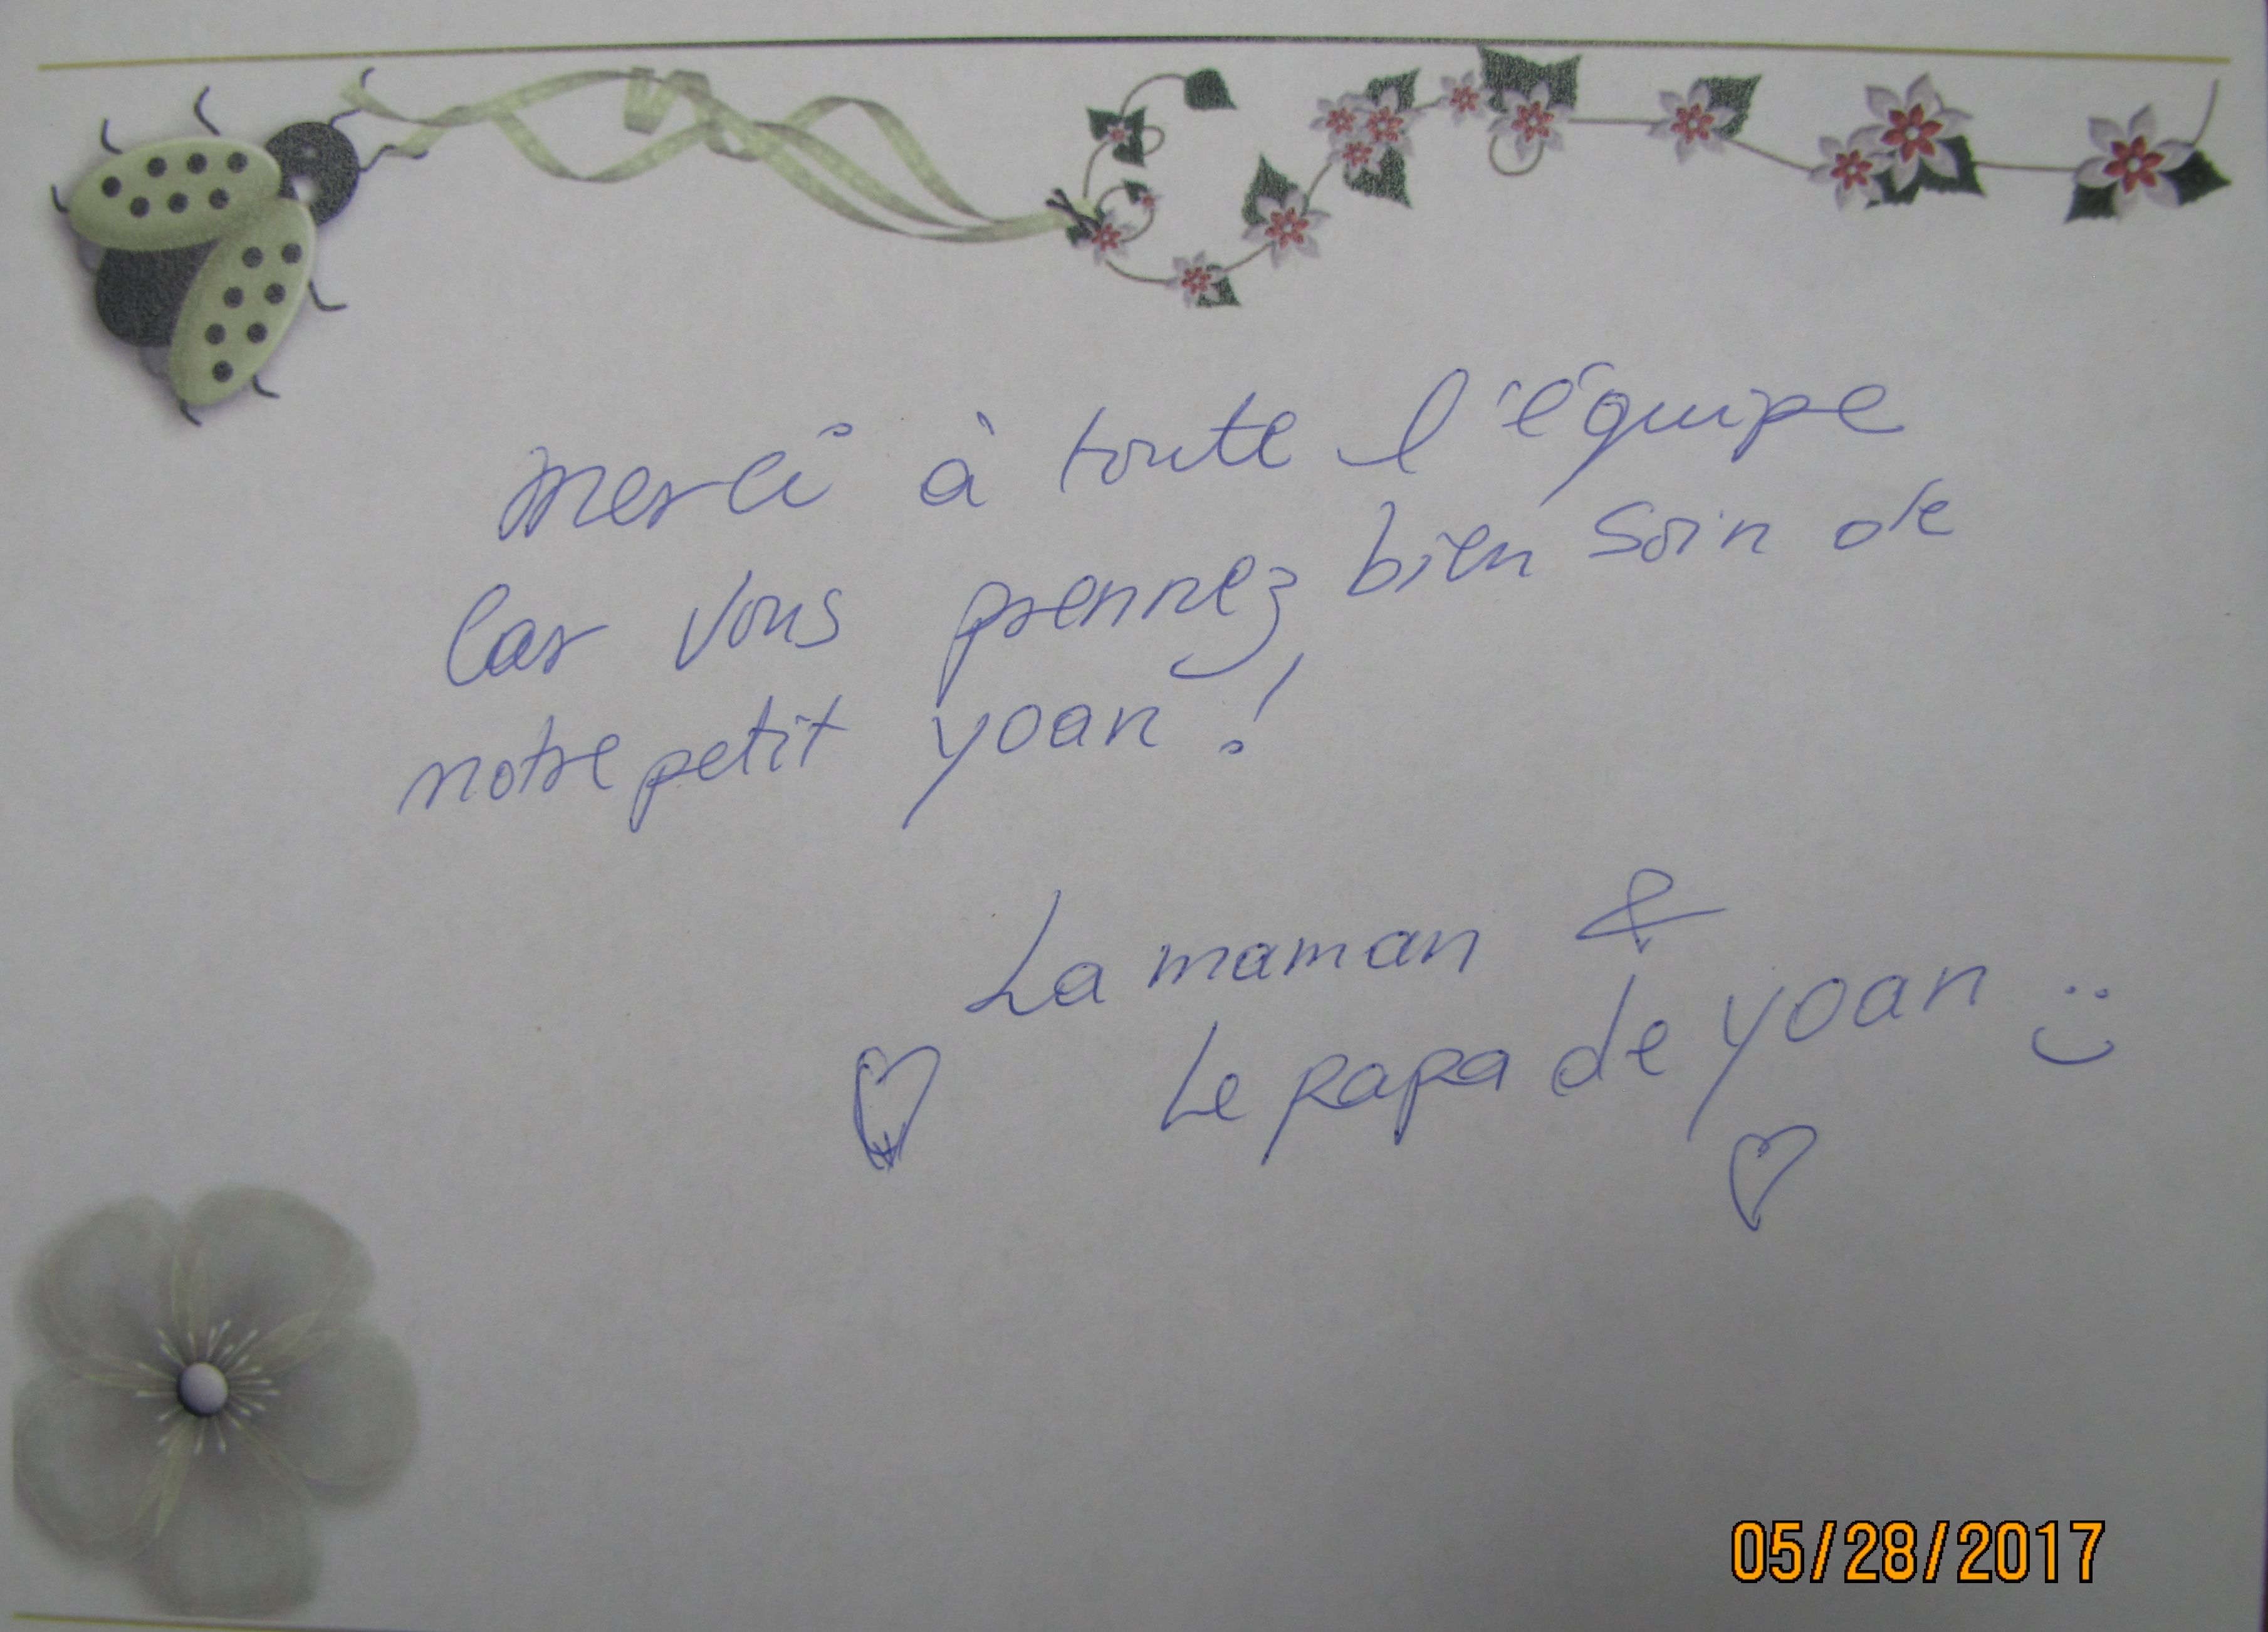 Merci à toute l'équipe
Car vous prennez bien soin de
notre petit yoan !
La maman &
Le papa de yoan :)
05/28/2017